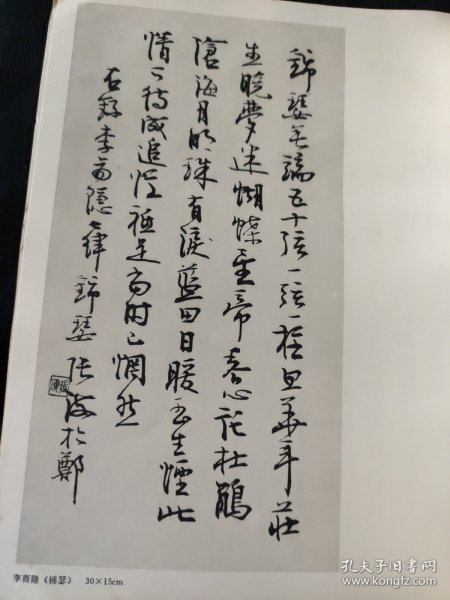 錦瑟無端五十弦一弦一柱思華年莊
生曉夢迷蝴蝶望帝春心託杜鵑
滄海月明珠有淚藍田日暖玉生煙此
情可待成追憶祇是當時已惘然
右錄李商隱七律錦瑟張海於鄭
李商隐《锦瑟》 30×15cm
孔夫子旧书网